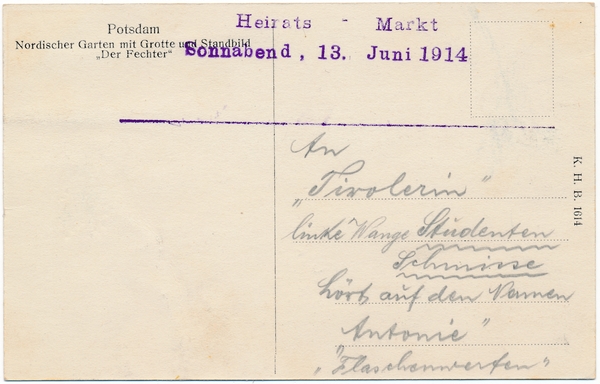 Potsdam
Nordischer Garten mit Grotte und Standbild
„Der Fechter“
Heirats - Markt
Sonnabend, 13. Juni 1914
K. H. B. 1614
An
„Tirolerin“
linke Wange Studenten
Schmisse
hört auf den Namen
Antonie“
„Flaschenwerfen“